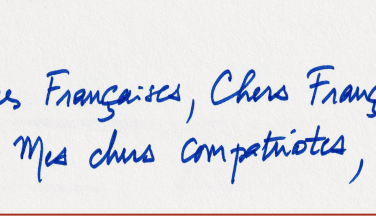 es Françaises, Chers Franç
Mes chers compatriotes,